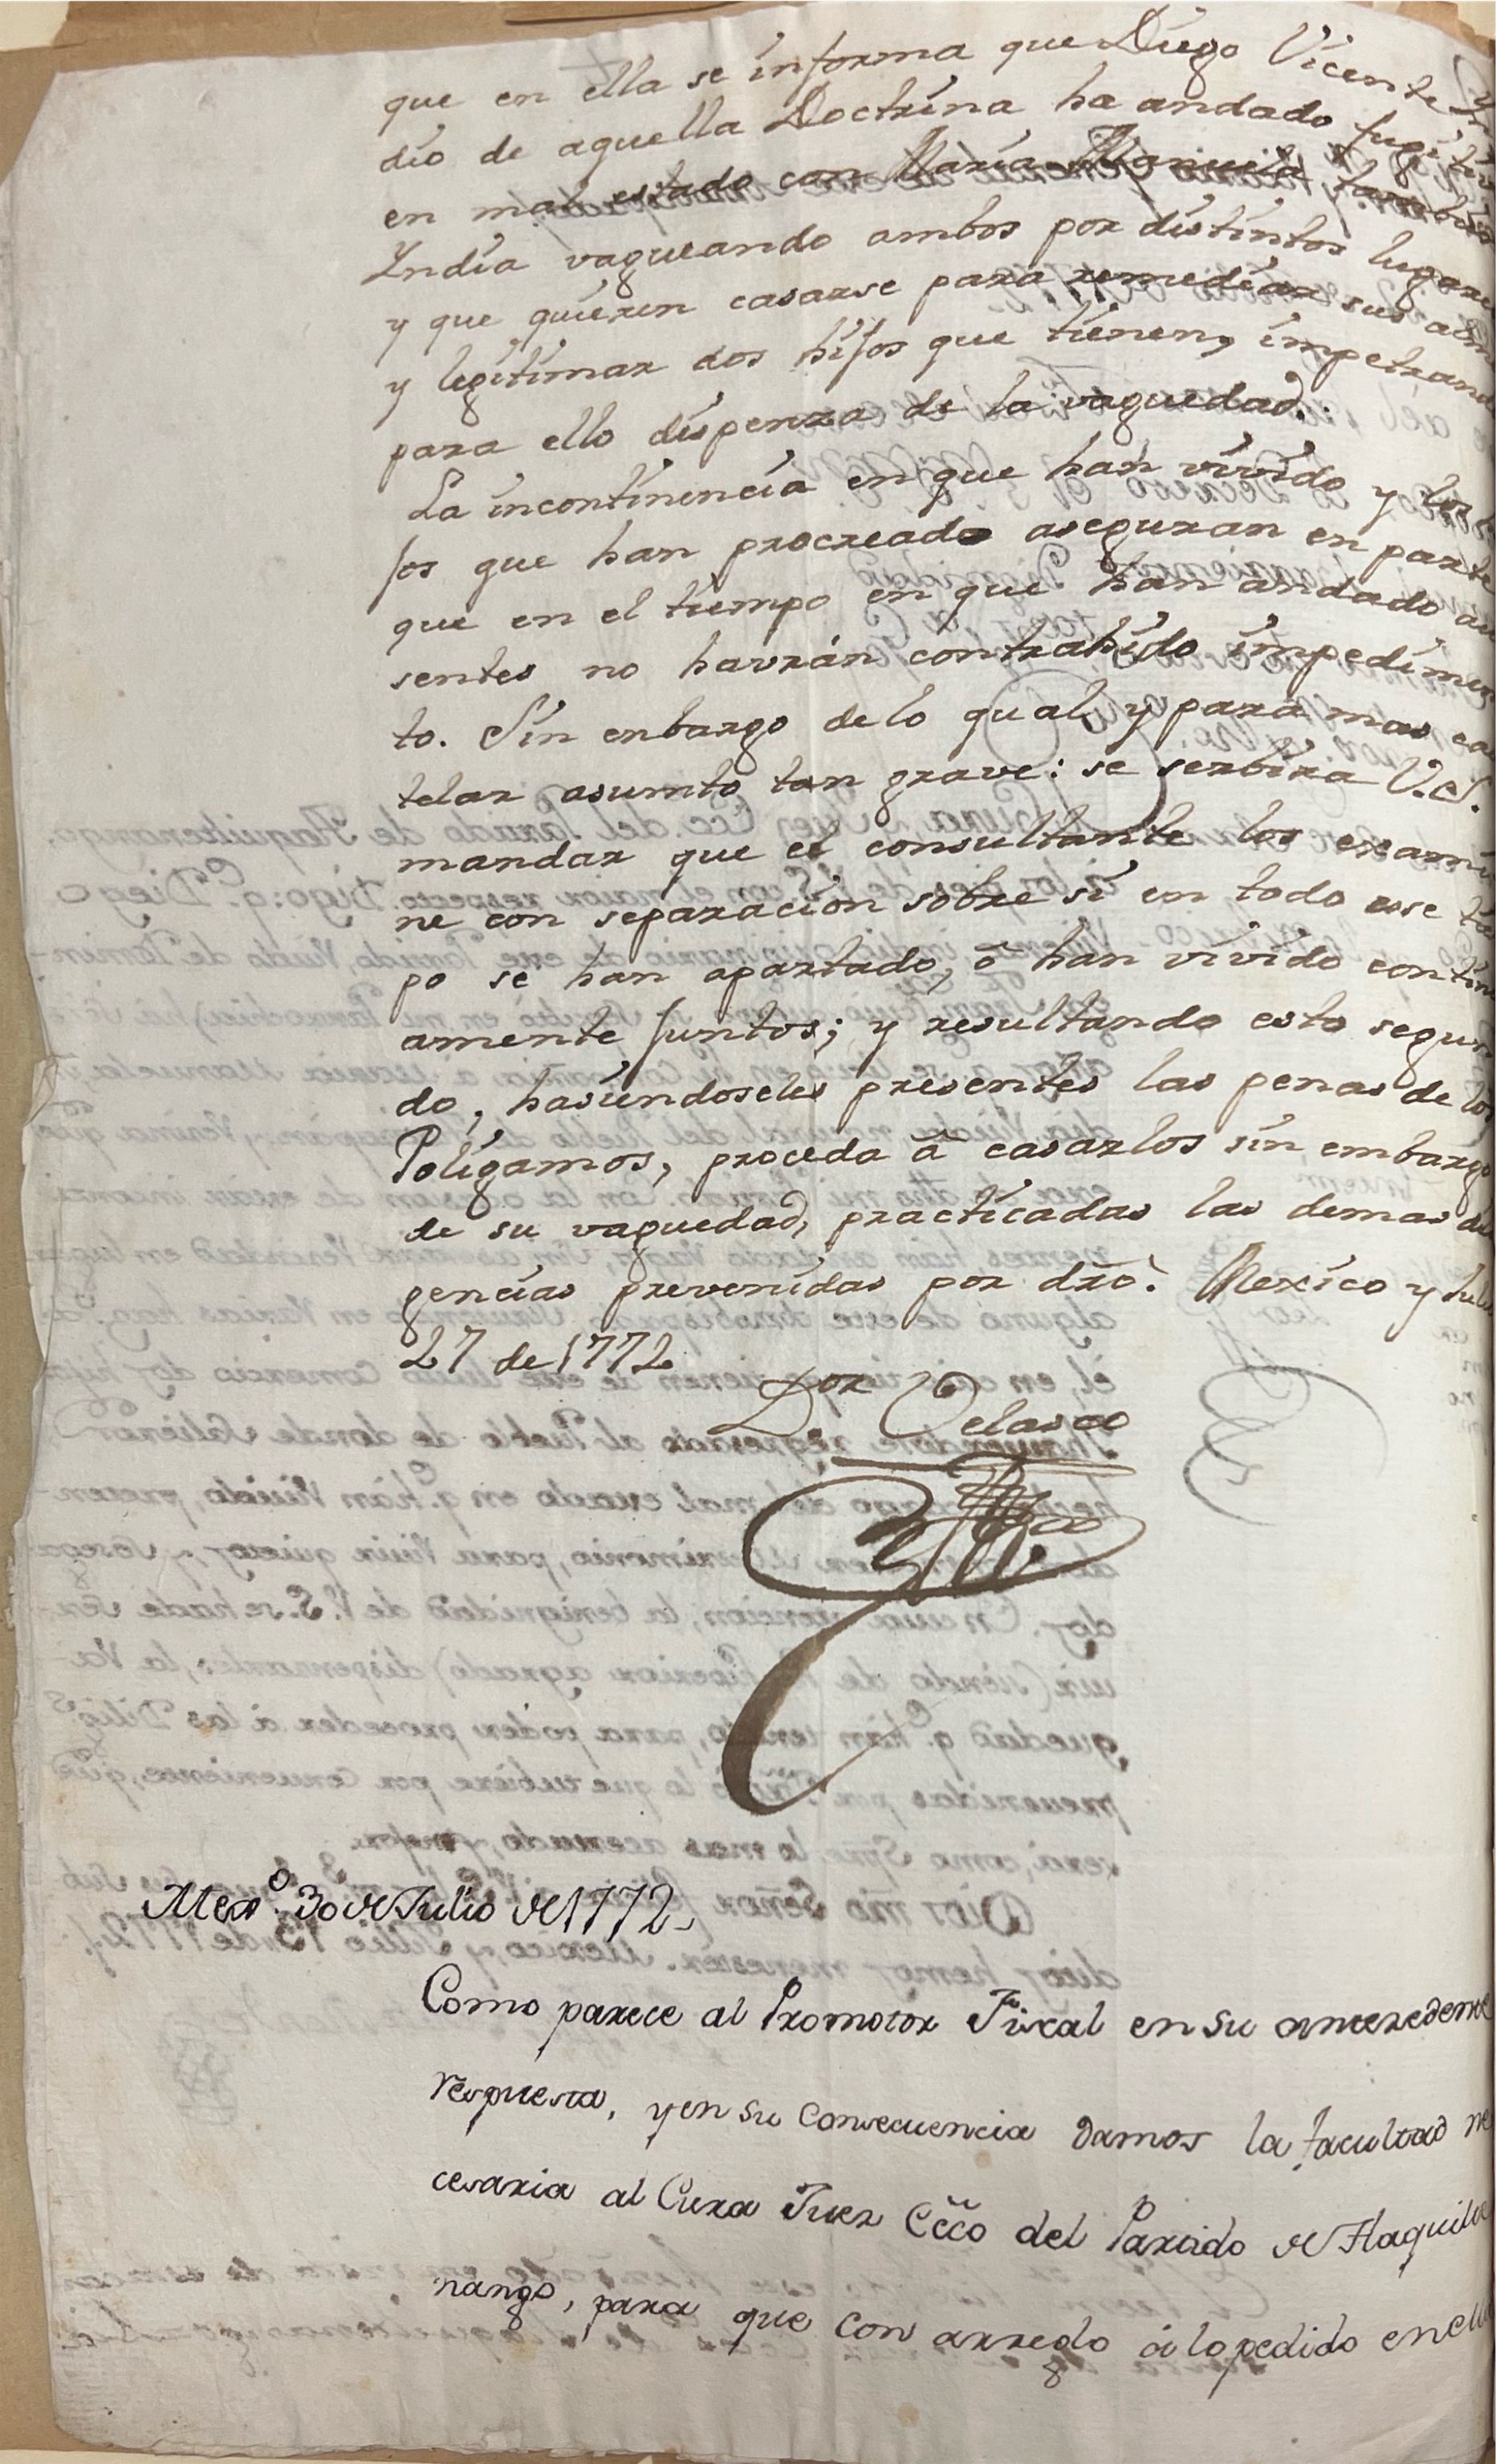 que en ella se informa que Diego Vicente Yn
dio de aquella Doctrina ha andado fugitivo
en mal estado con Maria Manuela tambien
Yndia vagueando ambos por distintos lugares
y que quieren casarse para remediar sus alma
y legitimar dos hijos que tienen, impetrand
para ello dispenza de la vaguedad.
La incontinencia en que han vivido y los
jos que han procreado aseguran en parte
que en el tiempo en que han andado au
sentes no havrán contrahido impedimen
to. Sin enbargo delo qual y para mas cau
telar asumto tan grave: se serbira V.S.
mandar que el consultante los exami
ne con separacion sobre si en todo ese tie
po se han apartado, ô han vivido contin
amente juntos; y resultando esto segun
do, hasiendoseles presentes las penas de los
Poligamos, proceda â casarlos sin embargo
de su vaguedad, practicadas las demas di
gencias prevenidas por dro. Mexico y Juli
27 de 1772
Dor Velasco
Mexo. 30 de Julio de 1772
Como parece al Promotor Fiscal en su antecedente
respuesta, y en su consecuencia damos la facultad ne
cesaria al Cura Juez Ecco del Partido de Tlaquilte
nango, para que con arreglo â lo pedido en ella